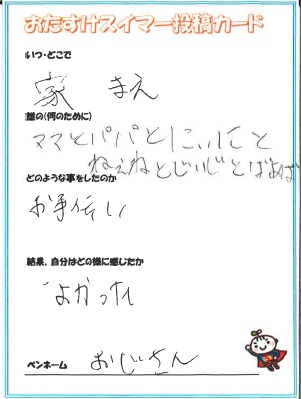 おたすけスイマー投稿カード
いつ・どこで
家 まえ
誰の(何のために)
ママとパパとにいにと
ねぇねとじいじとばぁば
どのような事をしたのか
お手伝い
結果、自分はどの様に感じたか
よかった
ペンネーム おじいさん